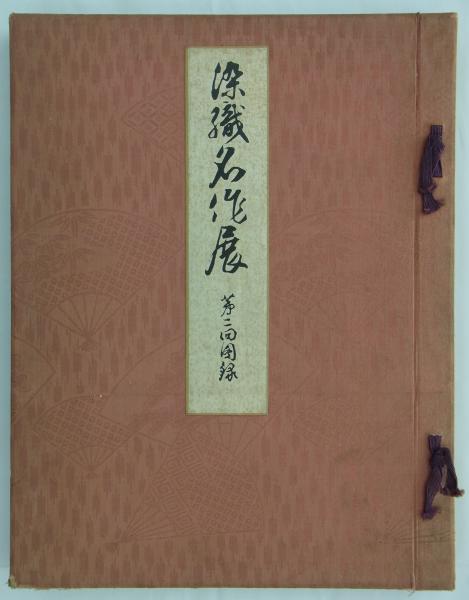 染織名作展
第二回図録